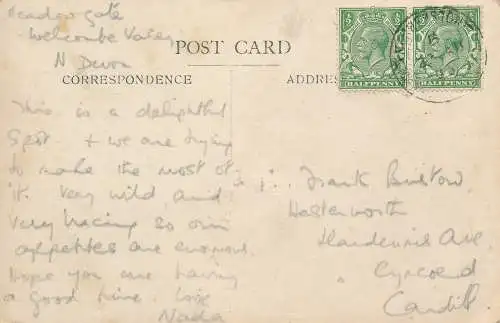 Meadow gate
Welcombe Valley
N Devon
POST CARD
CORRESPONDENCE
ADDRES
HALFPENNY
HALFPENNY
This is a delightful
spot + we are trying
to make the most of
it. Very wild and
very bracing so our
appetites are enormous.
Hope you are having
a good time. Love
Nada
Frank Bristow
Llandennis Ave
Cyncoed
Cardiff.